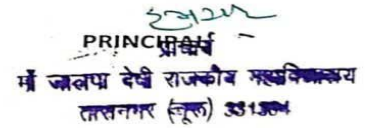 PRINCIPAL
प्राचार्य
माँ जालपा देवी राजकीय महाविद्यालय
तारानगर (चूरू) 331304